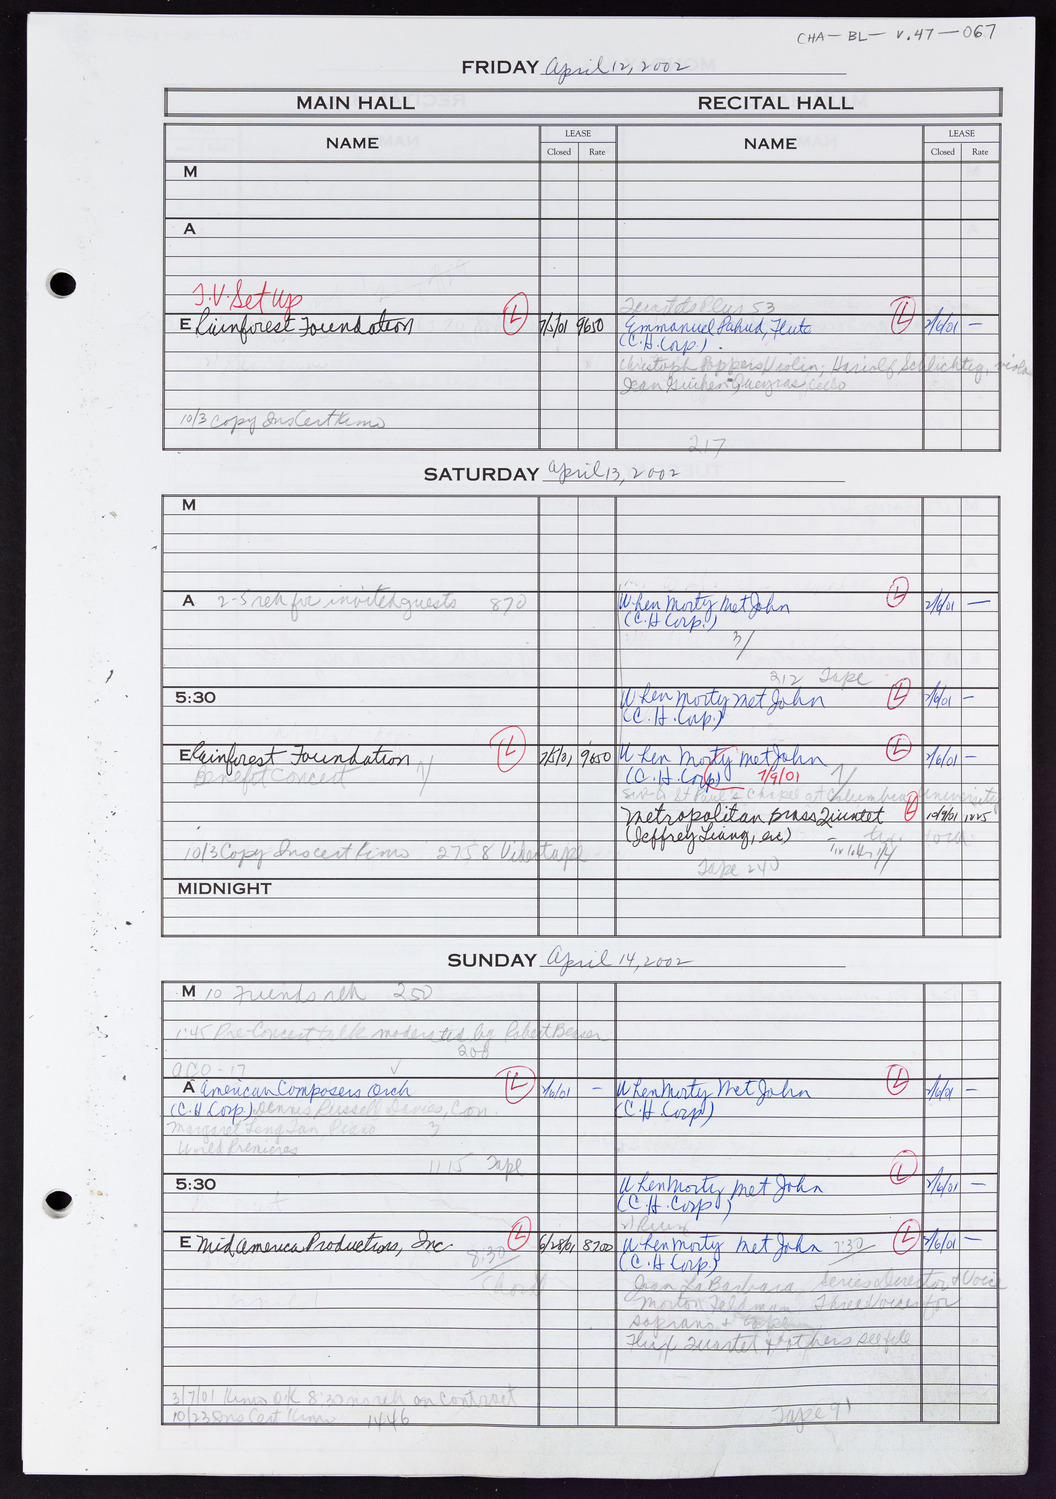 CHA-BL- v.47-067
FRIDAY April 12, 2002
MAIN HALL RECITAL HALL
NAME LEASE Closed Rate NAME LEASE Closed Rate
M
A
T.V. Set Up
53
E Rainforest Foundation L 7/5/01 9650 Emmanuel Pahud, Flute L 2/6/01 —
(C.H. Corp.)
Christoph Poppen, Violin; Hariolf Schlichtig, viola
Jean Guihen Queyras, Cello
10/3 Copy Ins Cert Kimo
217
SATURDAY April 13, 2002
M
A 2-5 reh for invited guests 870 When Morty Met John L 2/6/01 —
(C.H Corp.)
3/
212 Tape
5:30 When Morty Met John L 2/6/01 —
(C.H. Corp.)
E Rainforest Foundation L 7/5/01 9650 When Morty Met John L 2/6/01 —
Benefit Concert (C.H. Corp) 7/9/01
St Paul's Chapel at Columbia University
Metropolitan Brass Quintet L 10/9/01 1025
(Jeffrey Liang, etc)
10/3 Copy Ins cert Kimo 2758 Videotape
Tape 240
MIDNIGHT
SUNDAY April 14, 2002
M 10 Friends reh 250
1:45 Pre-Concert talk moderated by Robert Beaser
200
ACO-17
A American Composers Orch L 2/6/01 — When Morty Met John L 2/6/01 —
(C.H Corp.) Dennis Russell Davies, Con. (C.H. Corp)
Margaret Leng Tan, Piano 3
World Premieres
1115 Tape
5:30 When Morty Met John L 2/6/01 —
(C.H. Corp)
E MidAmerica Productions, Inc L 6/28/01 8700 When Morty Met John 7:30 L 2/6/01 —
8:30 (C.H. Corp)
Choral Joan La Barbara, Series Director & Voice
Morton Feldman: Three Voices for
Soprano & tape
Flux Quartet & others see file
3/7/01 Kimo OK 8:30 no reh on contract
10/23 Ins Cert Kimo 1446
Tape 91